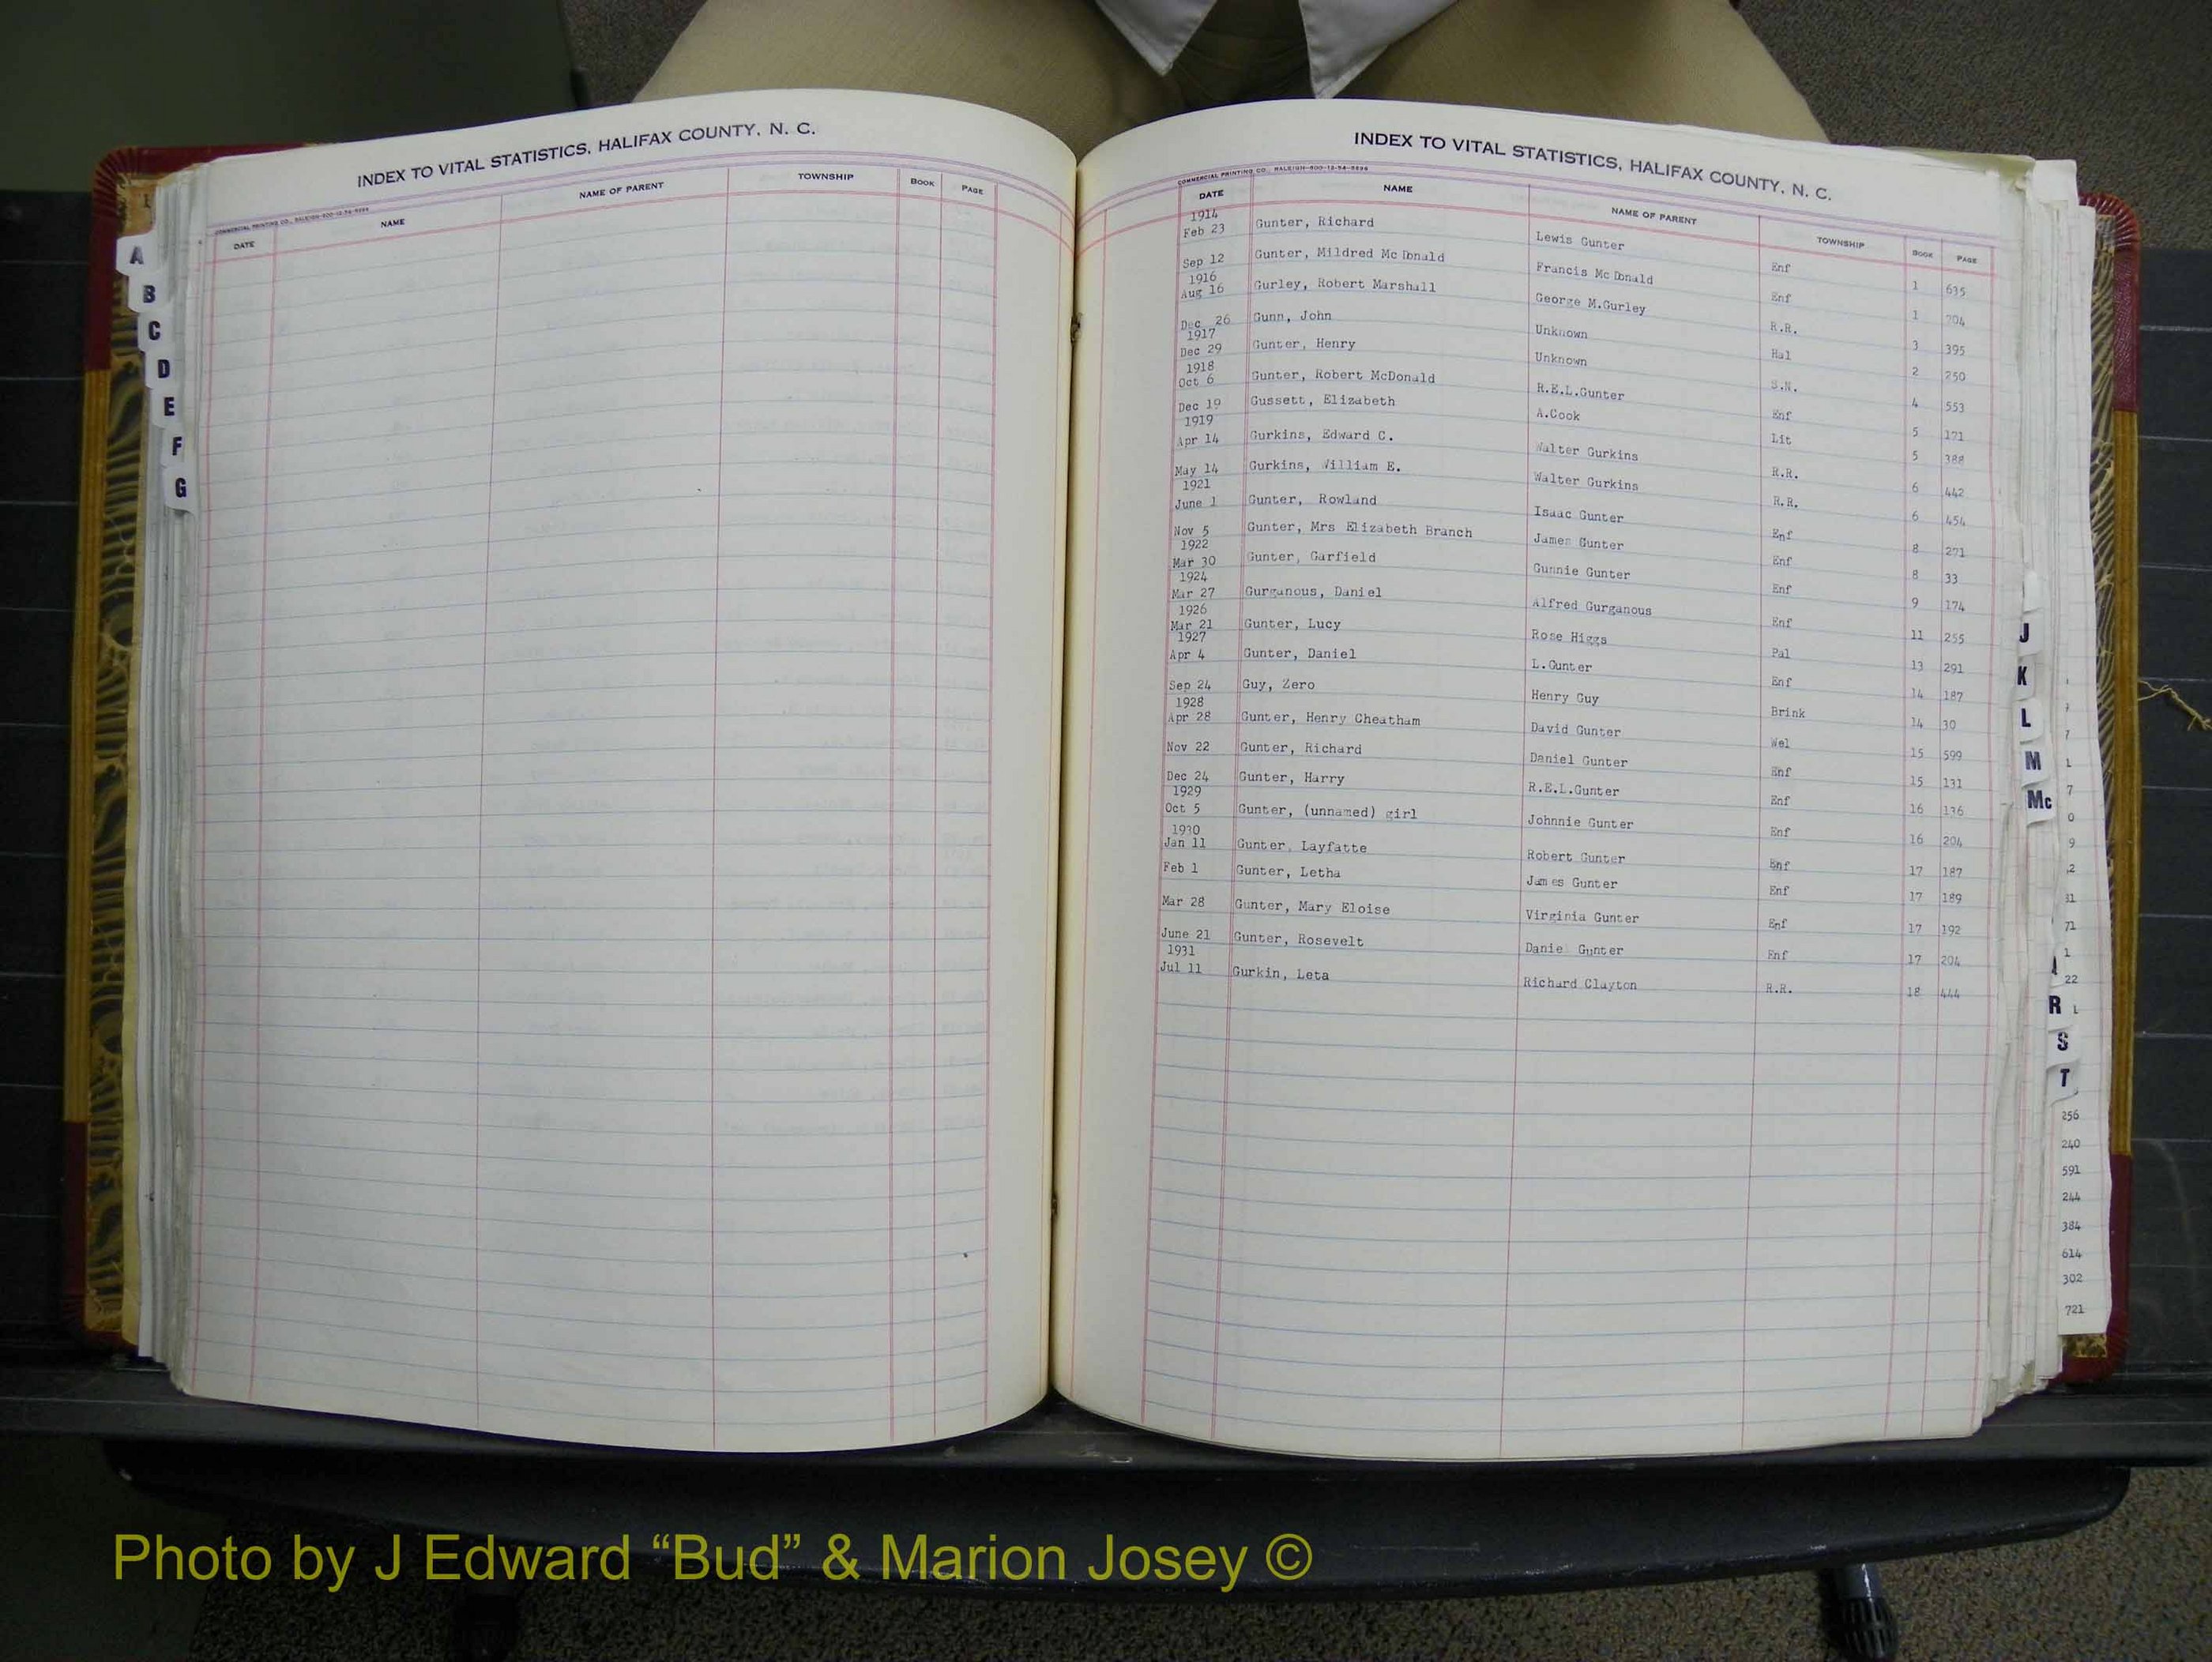 INDEX TO VITAL STATISTICS, HALIFAX COUNTY, N. C.
COMMERCIAL PRINTING CO., RALEIGH-800-12-54-8894
DATE NAME NAME OF PARENT TOWNSHIP BOOK PAGE
A
B
C
D
E
F
G
INDEX TO VITAL STATISTICS, HALIFAX COUNTY, N. C.
COMMERCIAL PRINTING CO., RALEIGH-800-12-54-8894
DATE NAME NAME OF PARENT TOWNSHIP BOOK PAGE
1914
Feb 23 Gunter, Richard Lewis Gunter Enf 1 635
Sep 12 Gunter, Mildred Mc Donald Francis Mc Donald Enf 1 704
1916
Aug 16 Gurley, Robert Marshall George M.Gurley R.R. 3 395
Dec 26 Gunn, John Unknown Hal 2 250
1917
Dec 29 Gunter, Henry Unknown S.N. 4 553
1918
Oct 6 Gunter, Robert McDonald R.E.L.Gunter Enf 5 171
Dec 19 Gussett, Elizabeth A.Cook Lit 5 388
1919
Apr 14 Gurkins, Edward C. Walter Gurkins R.R. 6 442
May 14 Gurkins, William E. Walter Gurkins R.R. 6 454
1921
June 1 Gunter, Rowland Isaac Gunter Enf 8 271
Nov 5 Gunter, Mrs Elizabeth Branch James Gunter Enf 8 33
1922
Mar 30 Gunter, Garfield Gunnie Gunter Enf 9 174
1924
Mar 27 Gurganous, Daniel Alfred Gurganous Enf 11 255
1926
Mar 21 Gunter, Lucy Rose Higgs Pal 13 291
1927
Apr 4 Gunter, Daniel L.Gunter Enf 14 187
Sep 24 Guy, Zero Henry Guy Brink 14 30
1928
Apr 28 Gunter, Henry Cheatham David Gunter Wel 15 599
Nov 22 Gunter, Richard Daniel Gunter Enf 15 131
Dec 24 Gunter, Harry R.E.L.Gunter Enf 16 136
1929
Oct 5 Gunter, (unnamed) girl Johnnie Gunter Enf 16 204
1930
Jan 11 Gunter, Layfatte Robert Gunter Enf 17 187
Feb 1 Gunter, Letha James Gunter Enf 17 189
Mar 28 Gunter, Mary Eloise Virginia Gunter Enf 17 192
June 21 Gunter, Rosevelt Daniel Gunter Enf 17 204
1931
Jul 11 Gurkin, Leta Richard Clayton R.R. 18 444
J
K
L
M
Mc
R
S
T
7
1
7
0
9
2
31
71
1
22
256
240
591
244
384
614
302
721
Photo by J Edward “Bud” & Marion Josey ©